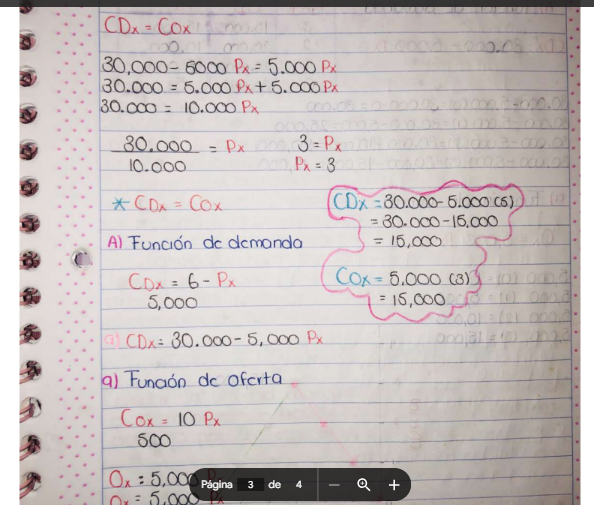 CDx = COx
30,000 - 5000 Px = 5.000 Px
30.000 = 5.000 Px + 5.000 Px
30.000 = 10.000 Px
30.000 = Px
10.000
3 = Px
Px = 3
* CDx = COx
CDx = 30.000 - 5.000 (5)
= 30.000 - 15,000
= 15,000
COx = 5.000 (3)
= 15,000
A) Función de demanda
CDx = 6 - Px
5,000
a) CDx = 30.000 - 5,000 Px
a) Función de oferta
COx = 10 Px
500
Ox = 5,000
Ox = 5,000 Px
Página 3 de 4 — +